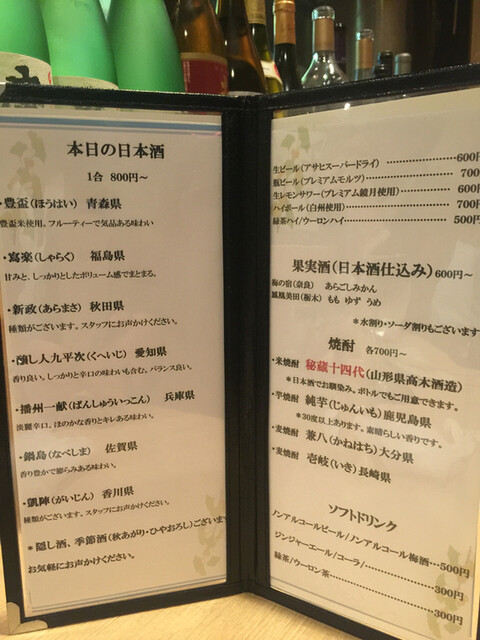 本日の日本酒
1合 800円～
・豊盃(ほうはい) 青森県
豊盃米使用。フルーティーで気品ある味わい
・寫楽(しゃらく) 福島県
甘みと、しっかりとしたボリューム感でまとまる。
・新政(あらまさ) 秋田県
種類がございます。スタッフにお声かけください。
・醸し人九平次(くへいじ) 愛知県
香り良い。しっかりと辛口の味わいも含む。バランス良い。
・播州一献(ばんしゅういっこん) 兵庫県
淡麗辛口。ほのかな香りとキレある味わい。
・鍋島(なべしま) 佐賀県
香り豊かで膨らみある味わい。
・凱陣(がいじん) 香川県
種類がございます。スタッフにお声かけください。
＊隠し酒、季節酒(秋あがり・ひやおろし)ございます
お気軽にお声かけください。
生ビール(アサヒスーパードライ) 600円
瓶ビール(プレミアムモルツ) 700
生レモンサワー(プレミアム鏡月使用) 600円
ハイボール(白州使用) 700
緑茶ハイ/ウーロンハイ 500円
果実酒(日本酒仕込み)600円～
梅の宿(奈良) あらごしみかん
鳳凰美田(栃木) もも ゆず うめ
＊水割り・ソーダ割りもございます
焼酎 各700円～
・米焼酎 秘蔵十四代(山形県高木酒造)
＊日本酒でお馴染み。ボトルでもご用意できます。
・芋焼酎 純芋(じゅんいも)鹿児島県
＊30度以上あります。素晴らしい香りです。
・麦焼酎 兼八(かねはち)大分県
・麦焼酎 壱岐(いき)長崎県
ソフトドリンク
ノンアルコールビール/ノンアルコール梅酒…500円
ジンジャーエール/コーラ/ 300円
緑茶/ウーロン茶 300円